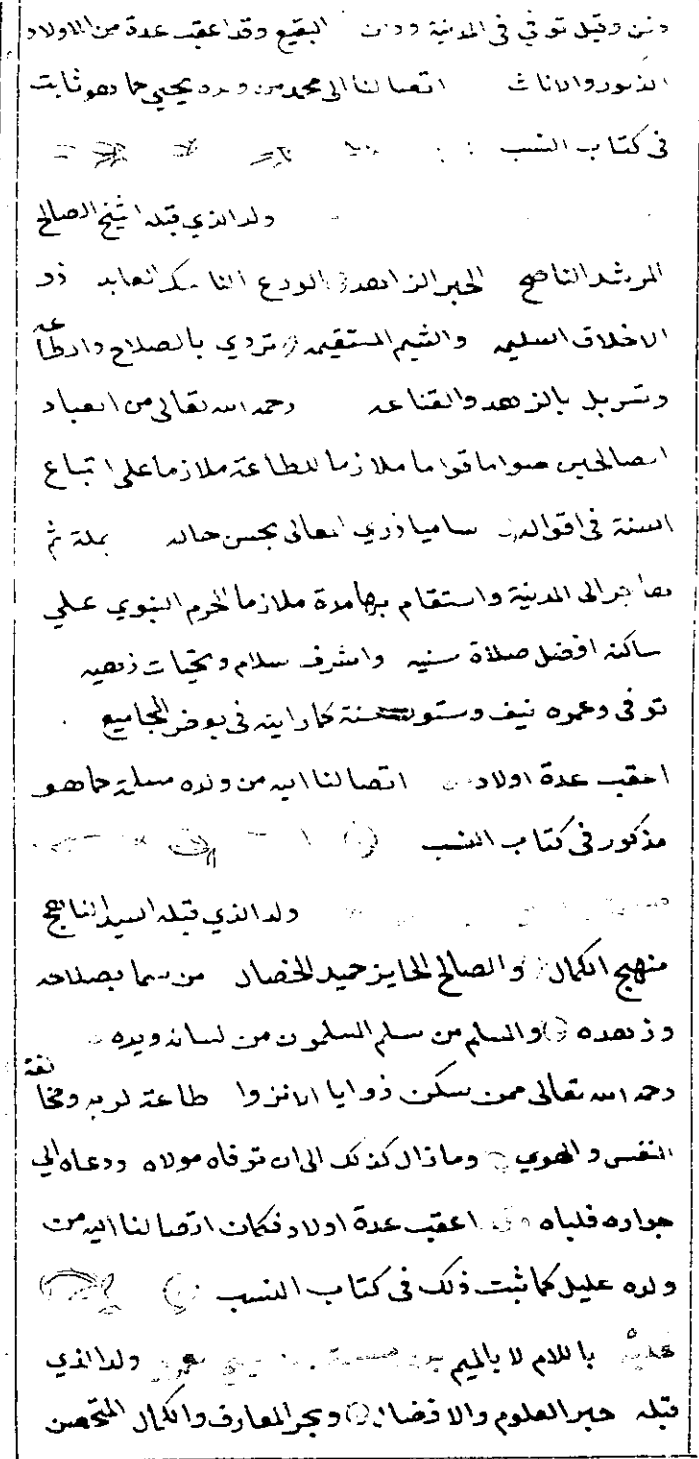 دفن وقيل توفي في المدينة ودفن البقيع وقد اعقب عدة من الاولاد
الذكور والاناث اتصالنا الى محمد من ولده يحيى كما هو ثابت
في كتاب النسب
ولد الذي قبله الشيخ الصالح
المرشد الناصح الحبر الزاهد الورع الناسك العابد ذو
الاخلاق السليمه والشيم المستقيمه تردي بالصلاح والطاعه
وتسربل بالزهد والقناعه رحمه الله تعالى من العباد
الصالحين صواما قواما ملازما للطاعة ملازما على اتباع
السنة في اقواله ساميا ذري المعالى بحسن حاله بمكة ثم
هاجر الى المدينة واستقام بها مدة ملازما الحرم النبوي على
ساكنه افضل صلاة سنيه واشرف سلام وتحيات زهيه
توفى وعمره نيف وستون سنة كما رايته في بعض المجاميع
اعقب عدة اولاد اتصالنا اليه من ولده مسلمة كما هو
مذكور في كتاب النسب
ولد الذي قبله السيد الناهج
منهج الكمال والصالح الحايز حميد الخصال من سما بصلاحه
وزهده والمسلم من سلم المسلمون من لسانه ويده
رحمه الله تعالى ممن سكن زوايا الانزوا طاعة لربه ومخالفة
النفس والهوي وما زال كذلك الى ان توفاه مولاه ودعاه الي
جواره فلباه اعقب عدة اولاد فكان اتصالنا اليه من
ولده عليل كما ثبت ذلك في كتاب النسب
باللام لا بالميم ولد الذي
قبله حبر العلوم والافضال وبحر المعارف والكمال المتحصن